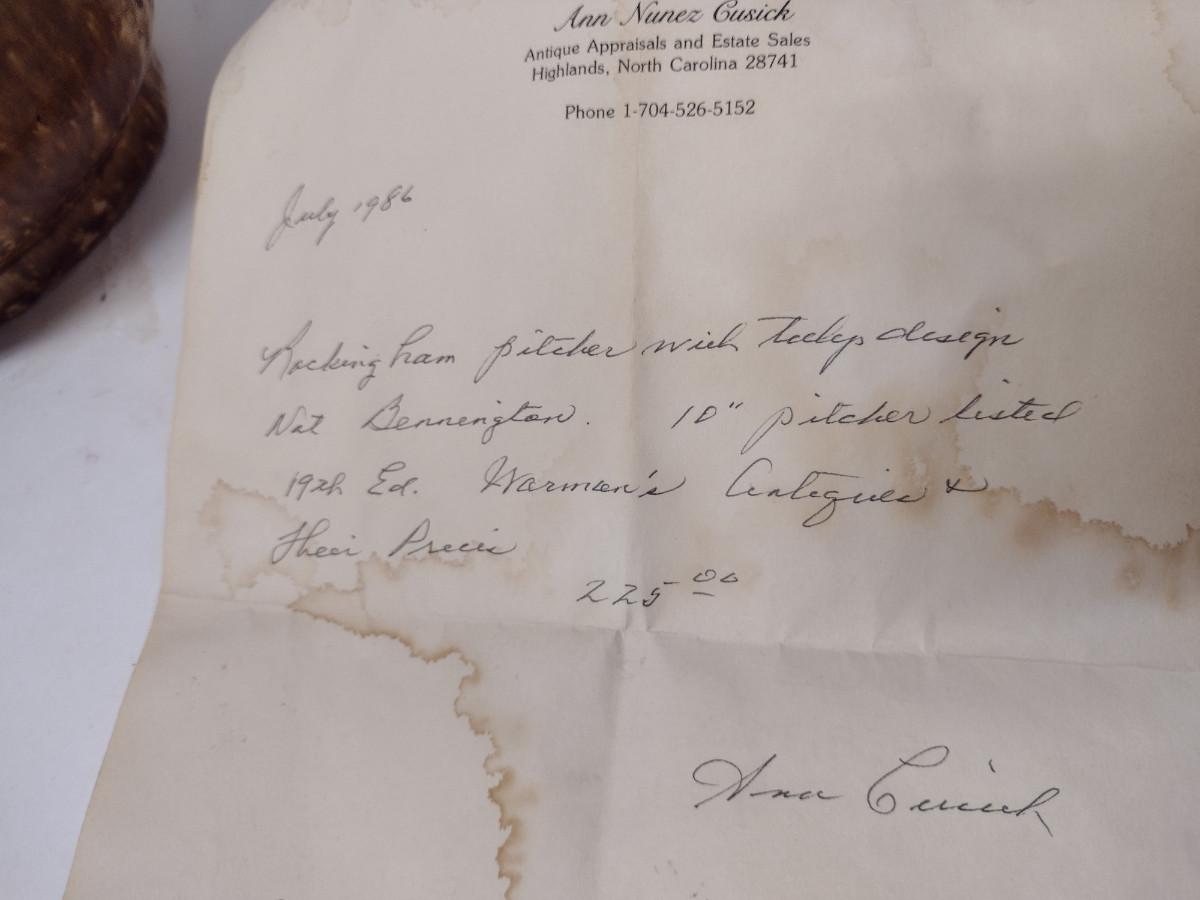 Ann Nunez Cusick
Antique Appraisals and Estate Sales
Highlands, North Carolina 28741
Phone 1-704-526-5152
July 1986
Rockingham pitcher with tulip design
Not Bennington. 10" pitcher listed
19th Ed. Warman's Antiques &
Their Prices
225.00
Ann Cusick